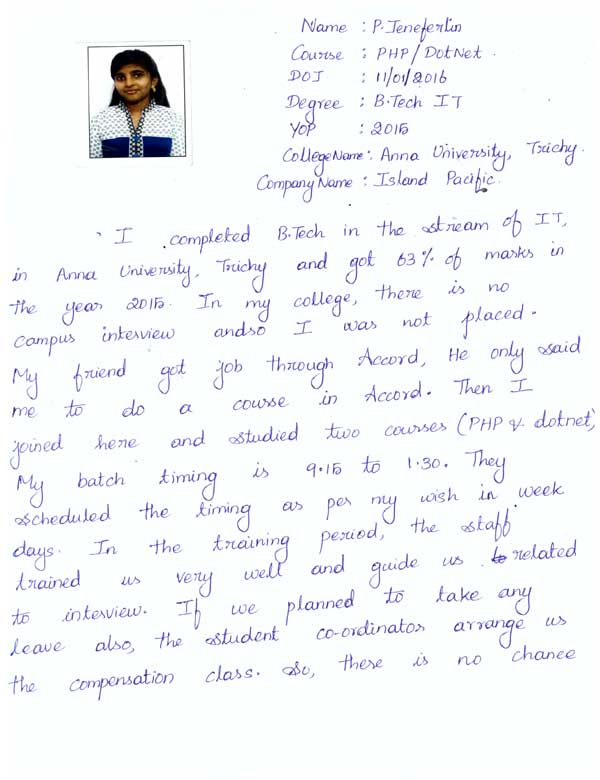 Name : P. Jeneferlin
Course : PHP / DotNet.
DOJ : 11/01/2016
Degree : B.Tech IT
YOP : 2015
College Name : Anna University, Trichy.
Company Name : Island Pacific.
I completed B.Tech in the stream of IT,
in Anna University, Trichy and got 63% of marks in
the year 2015. In my college, there is no
campus interview andso I was not placed.
My friend got job through Accord, He only said
me to do a course in Accord. Then I
joined here and studied two courses (PHP & dotnet)
My batch timing is 9.15 to 1.30. They
scheduled the timing as per my wish in week
days. In the training period, the staff
trained us very well and guide us related
to interview. If we planned to take any
leave also, the student co-ordinator arrange us
the compensation class. So, there is no chance